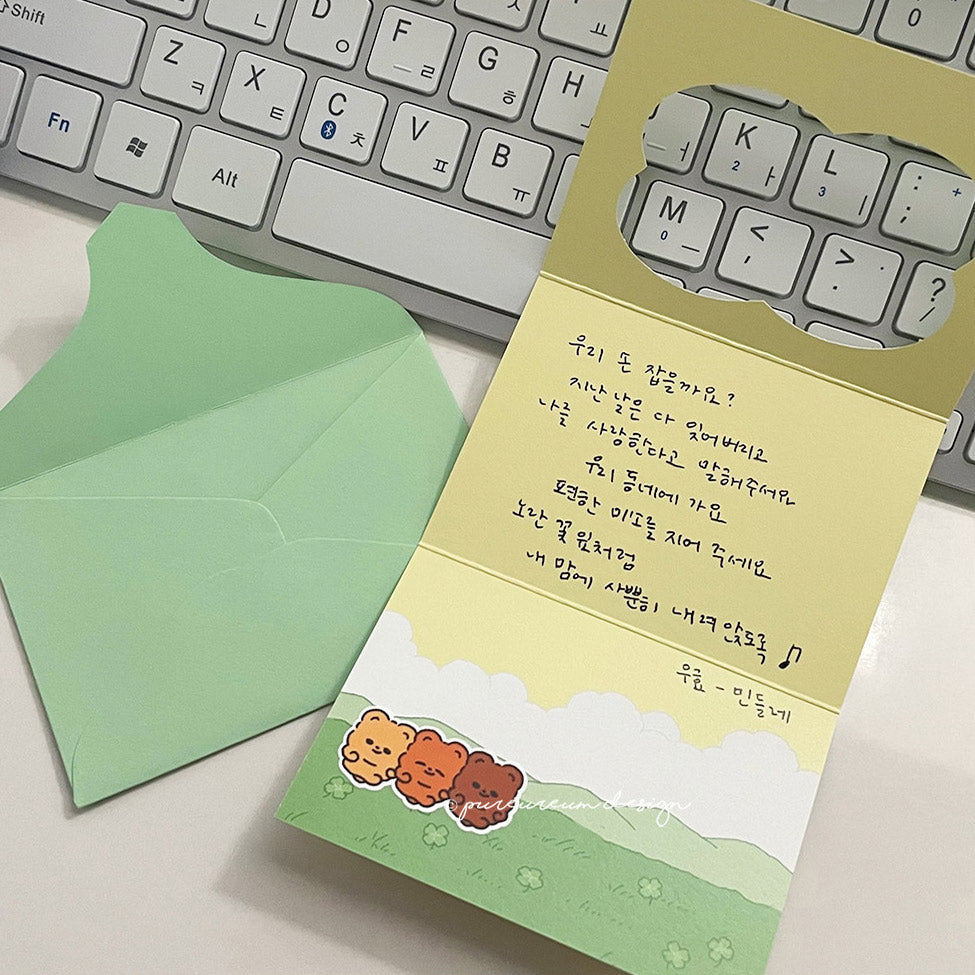 Shift
ㄴ
D ㅇ
F ㄹ
G ㅎ
H
0
Z ㅋ
X ㅌ
C ㅊ
V ㅍ
B ㅠ
K 2 ㅏ
L 3 ㅣ
: ; +
Fn
Alt
M 0 ㅡ
< ,
> .
? /
우리 손 잡을까요?
지난 날은 다 잊어버리고
나를 사랑한다고 말해주세요
우리 동네에 가요
편한 미소를 지어 주세요
노란 꽃잎처럼
내 맘에 사뿐히 내려앉도록 ♪
우효 - 민들레
pureureum design